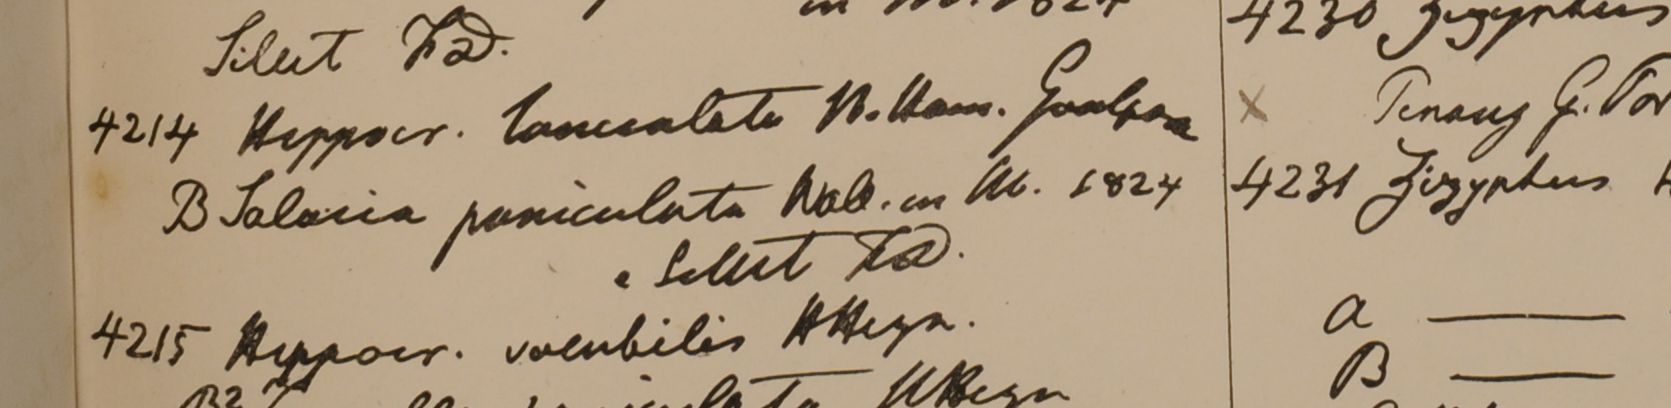 in M. 1824
Silut F.D.
4214 Hippocr. lanceolata B. Ham. Goalpara
B Salacia paniculata Wall. in M. 1824
Silut F.D.
4215 Hippocr. volubilis H Heyn.
paniculata H Heyn
4230 Zizyphus
x Penang G. Por
4231 Zizyphus
a —
B —